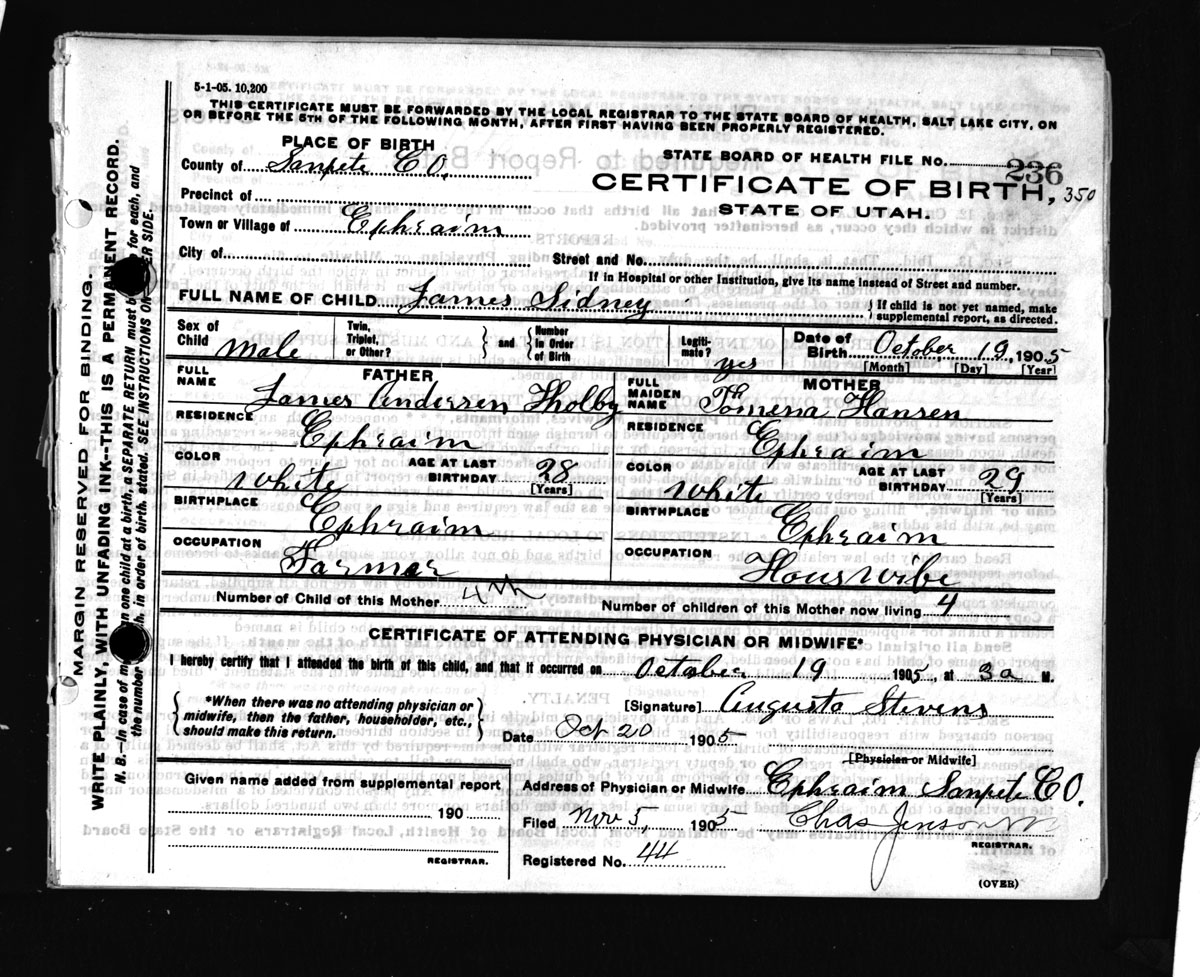 5-1-05. 10,200
THIS CERTIFICATE MUST BE FORWARDED BY THE LOCAL REGISTRAR TO THE STATE BOARD OF HEALTH, SALT LAKE CITY, ON
OR BEFORE THE 5TH OF THE FOLLOWING MONTH, AFTER FIRST HAVING BEEN PROPERLY REGISTERED.
PLACE OF BIRTH
County of Sanpete CO.
Precinct of
Town or Village of Ephraim
City of
STATE BOARD OF HEALTH FILE No. 236
CERTIFICATE OF BIRTH, 350
STATE OF UTAH.
Street and No.
If in Hospital or other Institution, give its name instead of Street and number.
FULL NAME OF CHILD James Sidney { If child is not yet named, make
supplemental report, as directed.
Sex of Child Male
Twin, Triplet, or Other? } and { Number in Order of Birth
Legiti- mate? yes
Date of Birth October 19, 1905
[Month] [Day] [Year]
FATHER
FULL NAME James Andersen Tholby
RESIDENCE Ephraim
COLOR White AGE AT LAST BIRTHDAY 28
[Years]
BIRTHPLACE Ephraim
OCCUPATION Farmar
MOTHER
FULL MAIDEN NAME Thomena Hansen
RESIDENCE Ephraim
COLOR White AGE AT LAST BIRTHDAY 29
[Years]
BIRTHPLACE Ephraim
OCCUPATION Houswibe
Number of Child of this Mother 4th Number of children of this Mother now living 4
CERTIFICATE OF ATTENDING PHYSICIAN OR MIDWIFE*
I hereby certify that I attended the birth of this child, and that it occurred on October 19 1905, at 3 a M.
{ *When there was no attending physician or
midwife, then the father, householder, etc.,
should make this return. }
[Signature] Augusta Stevens
Date Oct 20 1905
[Physician or Midwife]
Given name added from supplemental report
190
REGISTRAR.
Address of Physician or Midwife Ephraim Sanpete CO.
Filed Nov 5, 1905 Chas Jenson
REGISTRAR.
Registered No. 44
(OVER)
MARGIN RESERVED FOR BINDING.
WRITE PLAINLY, WITH UNFADING INK--THIS IS A PERMANENT RECORD.
N. B.--In case of m an one child at a birth, a SEPARATE RETURN must b for each, and
the number h, in order of birth, stated. SEE INSTRUCTIONS ON ER SIDE.